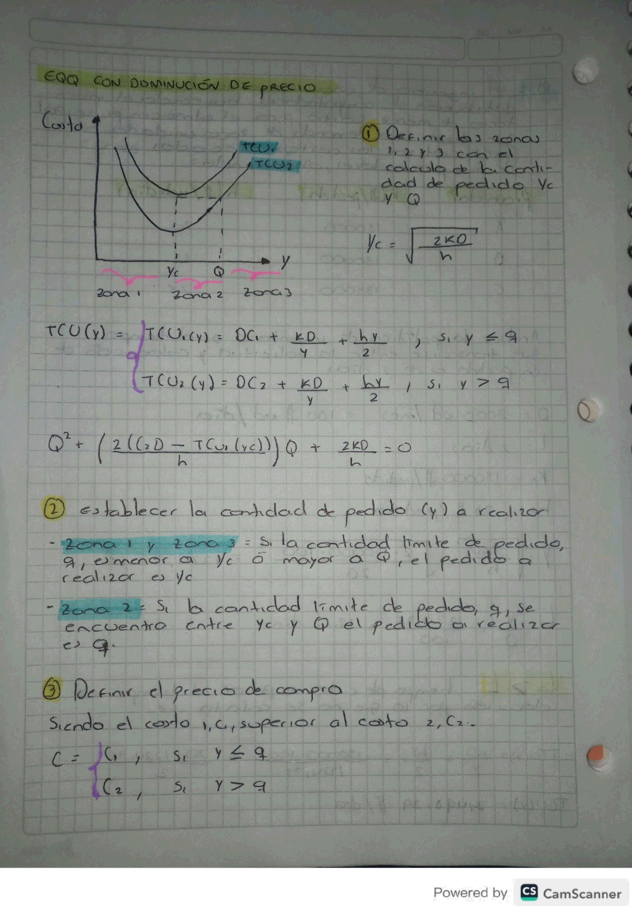 EOQ CON DOMINUCIÓN DE PRECIO
Costo
TCU1
TCU2
Yc
Q
y
zona 1
zona 2
zona 3
① Definir las zonas
1, 2 y 3 con el
calculo de la canti-
dad de pedido Yc
y Q
Yc = √(2KD / h)
TCU(y) = { TCU1(y) = DC1 + KD/y + hy/2 , si y ≤ q
TCU2(y) = DC2 + KD/y + hy/2 , si y > q
Q² + (2(C2D − TCU1(yc)) / h) Q + 2KD/h = 0
② establecer la cantidad de pedido (y) a realizar
- zona 1 y zona 3 = Si la cantidad limite de pedido,
q, es menor a Yc ó mayor a Q, el pedido a
realizar es Yc
- zona 2 = Si la cantidad límite de pedido, q, se
encuentro entre Yc y Q el pedido a realizar
es q.
③ Definir el precio de compra
Siendo el costo 1, C1, superior al costo 2, C2.
C = { C1 , si y ≤ q
C2 , si y > q
Powered by CS CamScanner